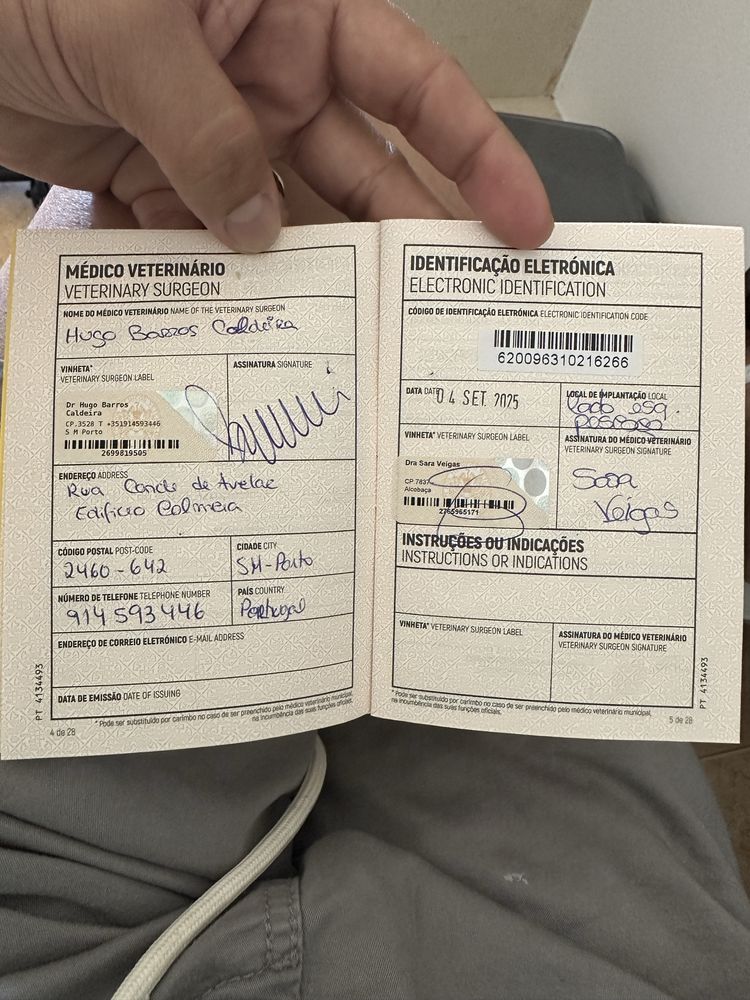 MÉDICO VETERINÁRIO
VETERINARY SURGEON
NOME DO MÉDICO VETERINÁRIO NAME OF THE VETERINARY SURGEON
Hugo Barros Caldeira
VINHETA*
VETERINARY SURGEON LABEL
ASSINATURA SIGNATURE
Dr Hugo Barros
Caldeira
CP.3528 T +351914593446
S M Porto
2699819505
ENDEREÇO ADDRESS
Rua Conde de Avelar
Edifício Colmeia
CÓDIGO POSTAL POST-CODE
2460-642
CIDADE CITY
SM-Porto
NÚMERO DE TELEFONE TELEPHONE NUMBER
914 593 446
PAÍS COUNTRY
Portugal
ENDEREÇO DE CORREIO ELETRÓNICO E-MAIL ADDRESS
DATA DE EMISSÃO DATE OF ISSUING
* Pode ser substituído por carimbo no caso de ser preenchido pelo médico veterinário municipal,
na incumbência das suas funções oficiais.
4 de 28
PT 4134493
IDENTIFICAÇÃO ELETRÓNICA
ELECTRONIC IDENTIFICATION
CÓDIGO DE IDENTIFICAÇÃO ELETRÓNICA ELECTRONIC IDENTIFICATION CODE
620096310216266
DATA DATE
04 SET. 2025
LOCAL DE IMPLANTAÇÃO LOCAL
Lado esq.
VINHETA* VETERINARY SURGEON LABEL
ASSINATURA DO MÉDICO VETERINÁRIO
VETERINARY SURGEON SIGNATURE
Dra Sara Veigas
CP 7837
Alcobaça
2765965171
Sara
Veigas
INSTRUÇÕES OU INDICAÇÕES
INSTRUCTIONS OR INDICATIONS
VINHETA* VETERINARY SURGEON LABEL
ASSINATURA DO MÉDICO VETERINÁRIO
VETERINARY SURGEON SIGNATURE
* Pode ser substituído por carimbo no caso de ser preenchido pelo médico veterinário municipal,
na incumbência das suas funções oficiais.
5 de 28
PT 4134493